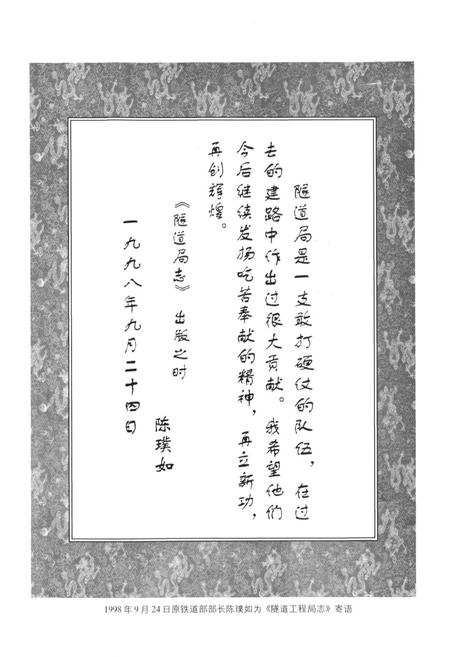 隧道局是一支敢打硬仗的队伍，在过
去的建路中作出过很大贡献。我希望他们
今后继续发扬吃苦奉献的精神，再立新功，
再创辉煌。
《隧道局志》出版之时
陈璞如
一九九八年九月二十四日
1998年9月24日原铁道部部长陈璞如为《隧道工程局志》寄语